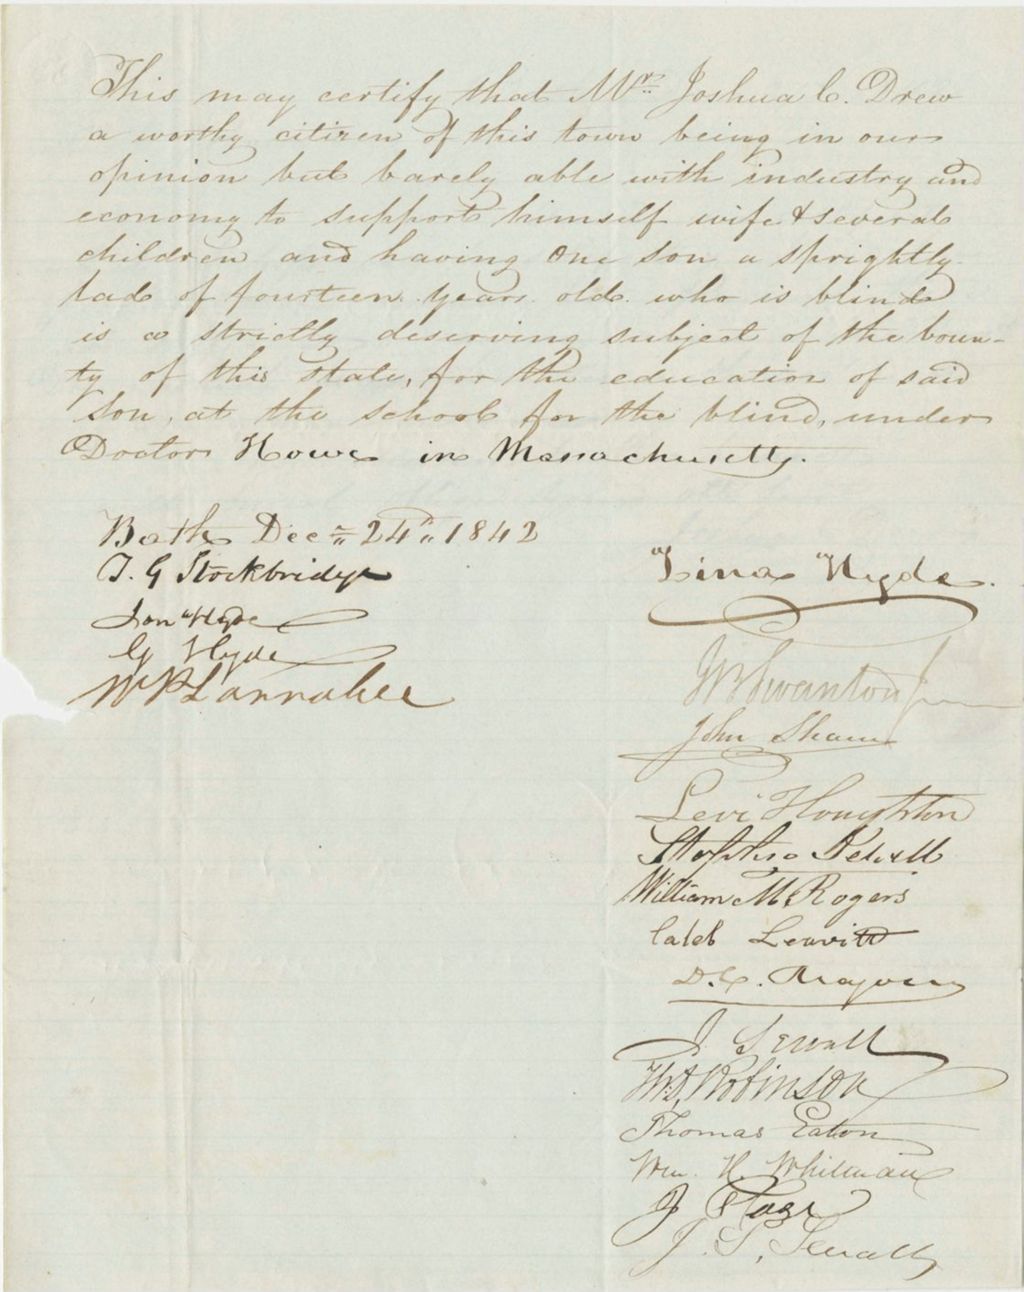 This may certify that Mr. Joshua C. Drew
a worthy citizen of this town being in our
opinion but barely able with industry and
economy to support himself wife & several
children and having one son a sprightly
lad of fourteen years old who is blind
is a strictly deserving subject of the boun-
ty of this state, for the education of said
son, at the school for the blind, under
Doctor Howe in Massachusetts.
Bath Dec 24th 1842
T. G Stockbridge
Jon Hyde
G Hyde
Wm P Larrabee
Zina Hyde.
Wm Swanton Jr
John Shaw
Levi Houghton
Stephen Sewall
William M. Rogers
Caleb Leavitt
D. C. Magoun
J. Sewall
Robinson
Thomas Eaton
Wm. H. Whitman
J Page
J. S. Sewall